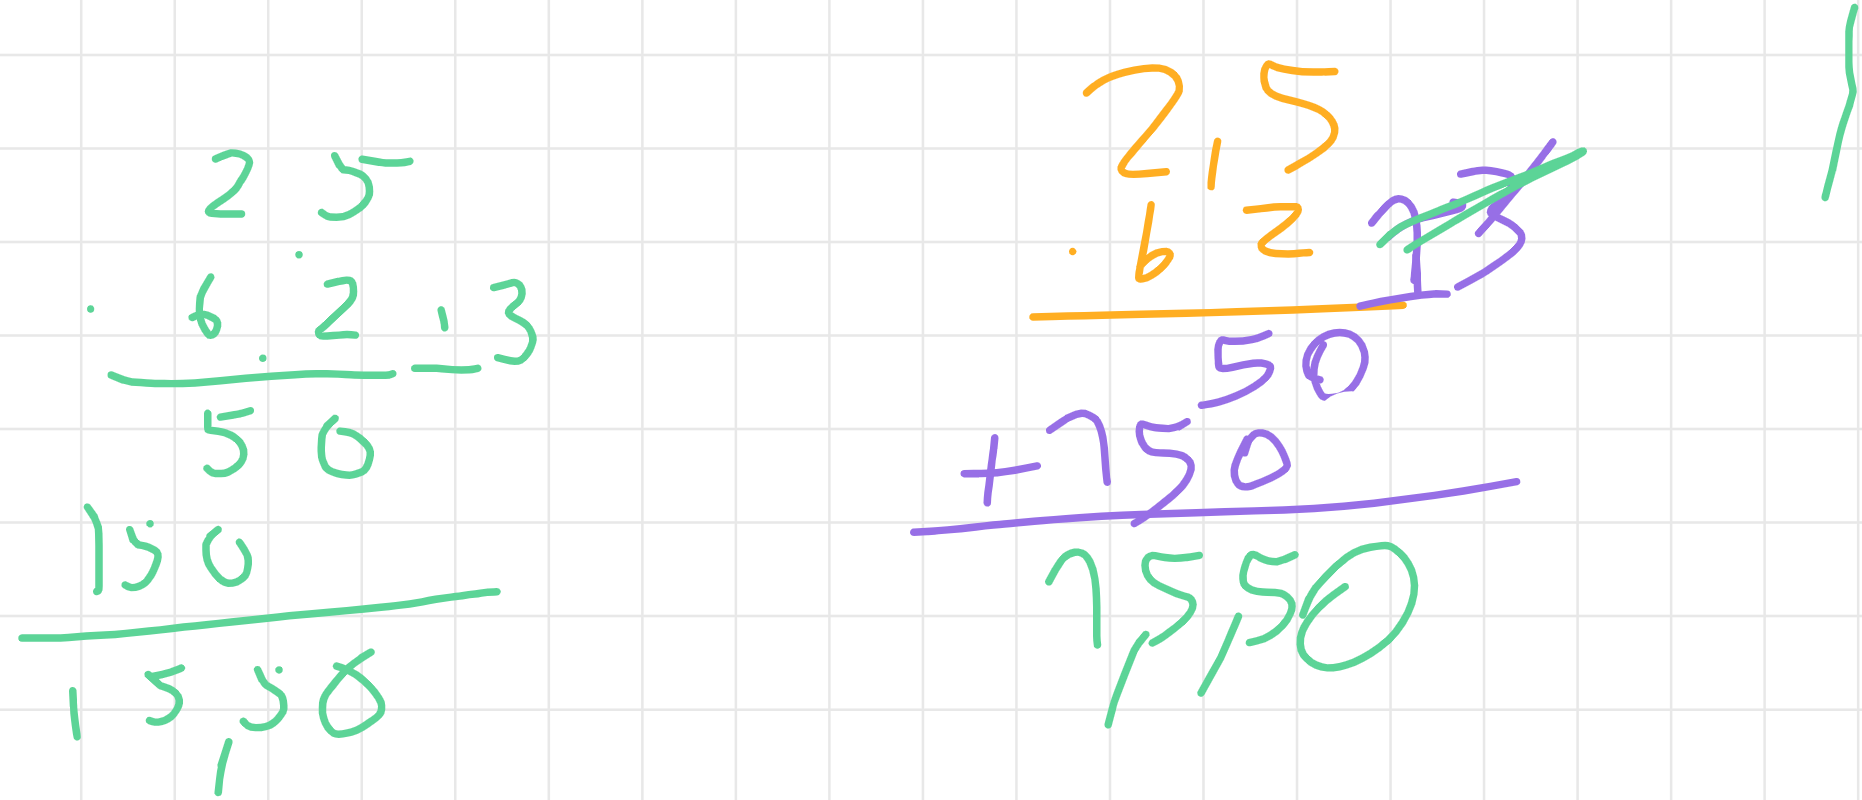 25
· 62,3
50
150
15,50
2,5
· 62
50
+150
1,5,50